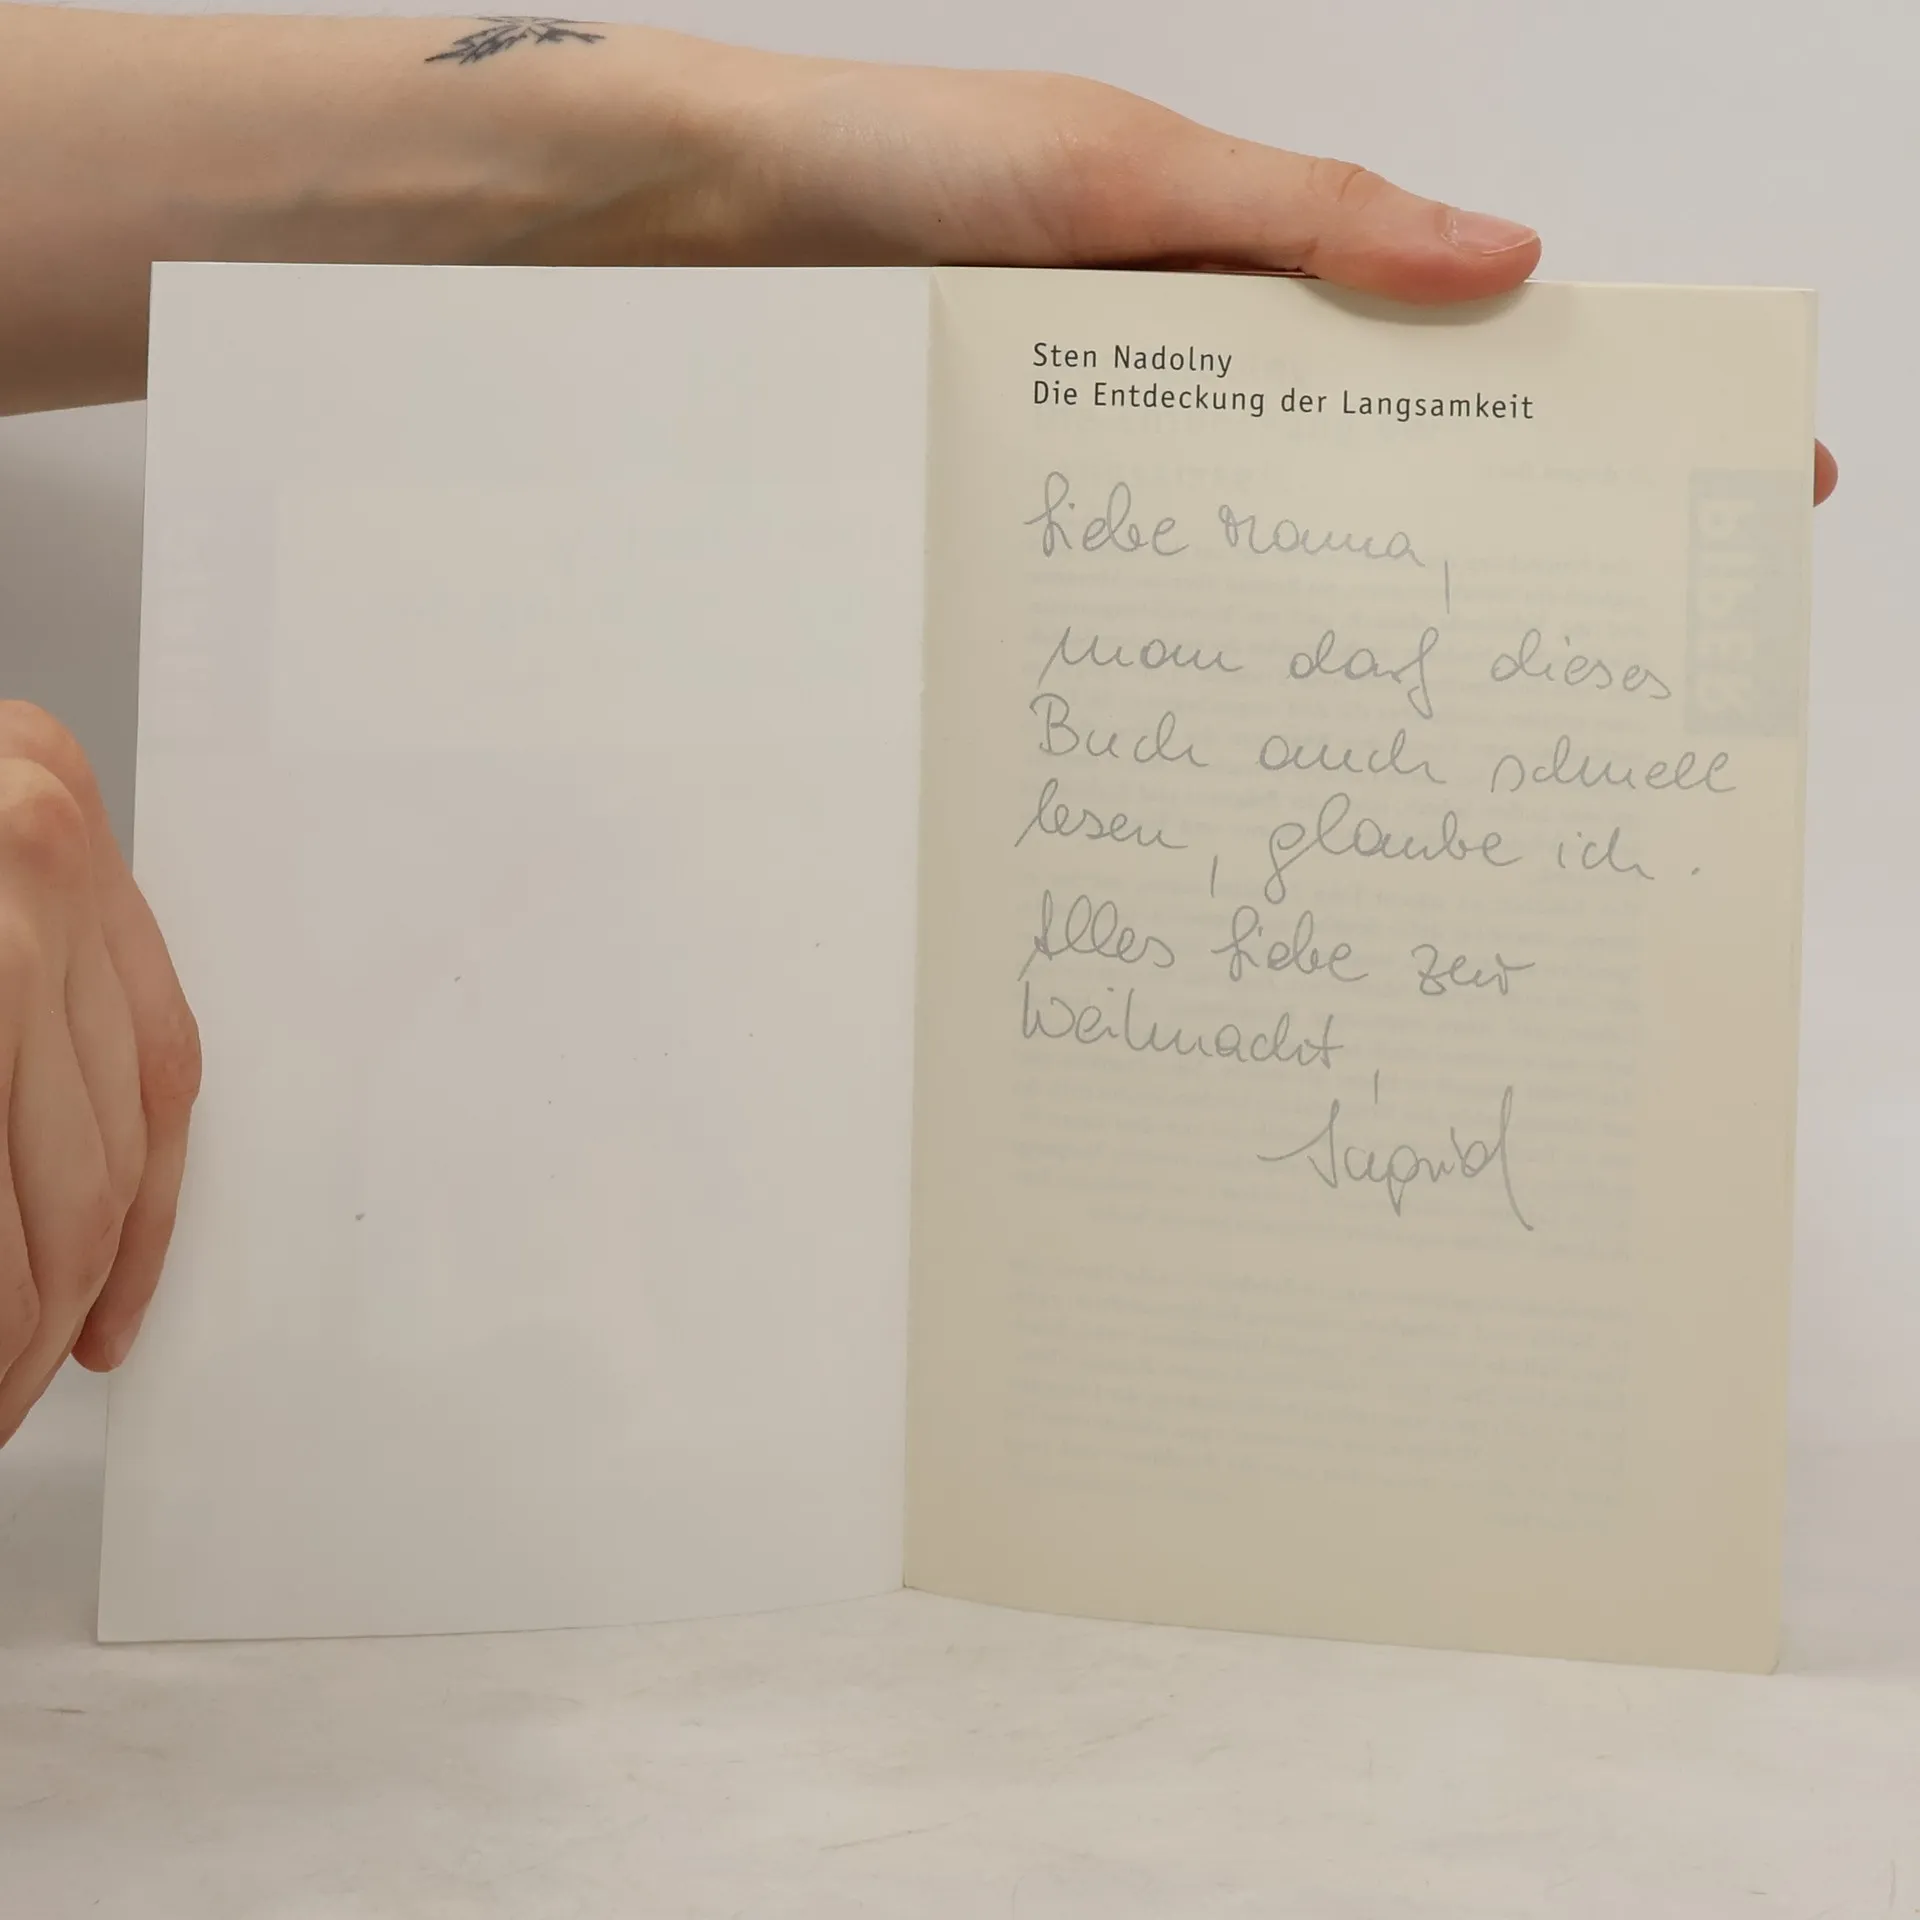 Sten Nadolny
Die Entdeckung der Langsamkeit
Liebe Mama,
man darf dieses
Buch auch schnell
lesen, glaube ich.
Alles Liebe zur
Weihnacht,
Sigrid
PIPER